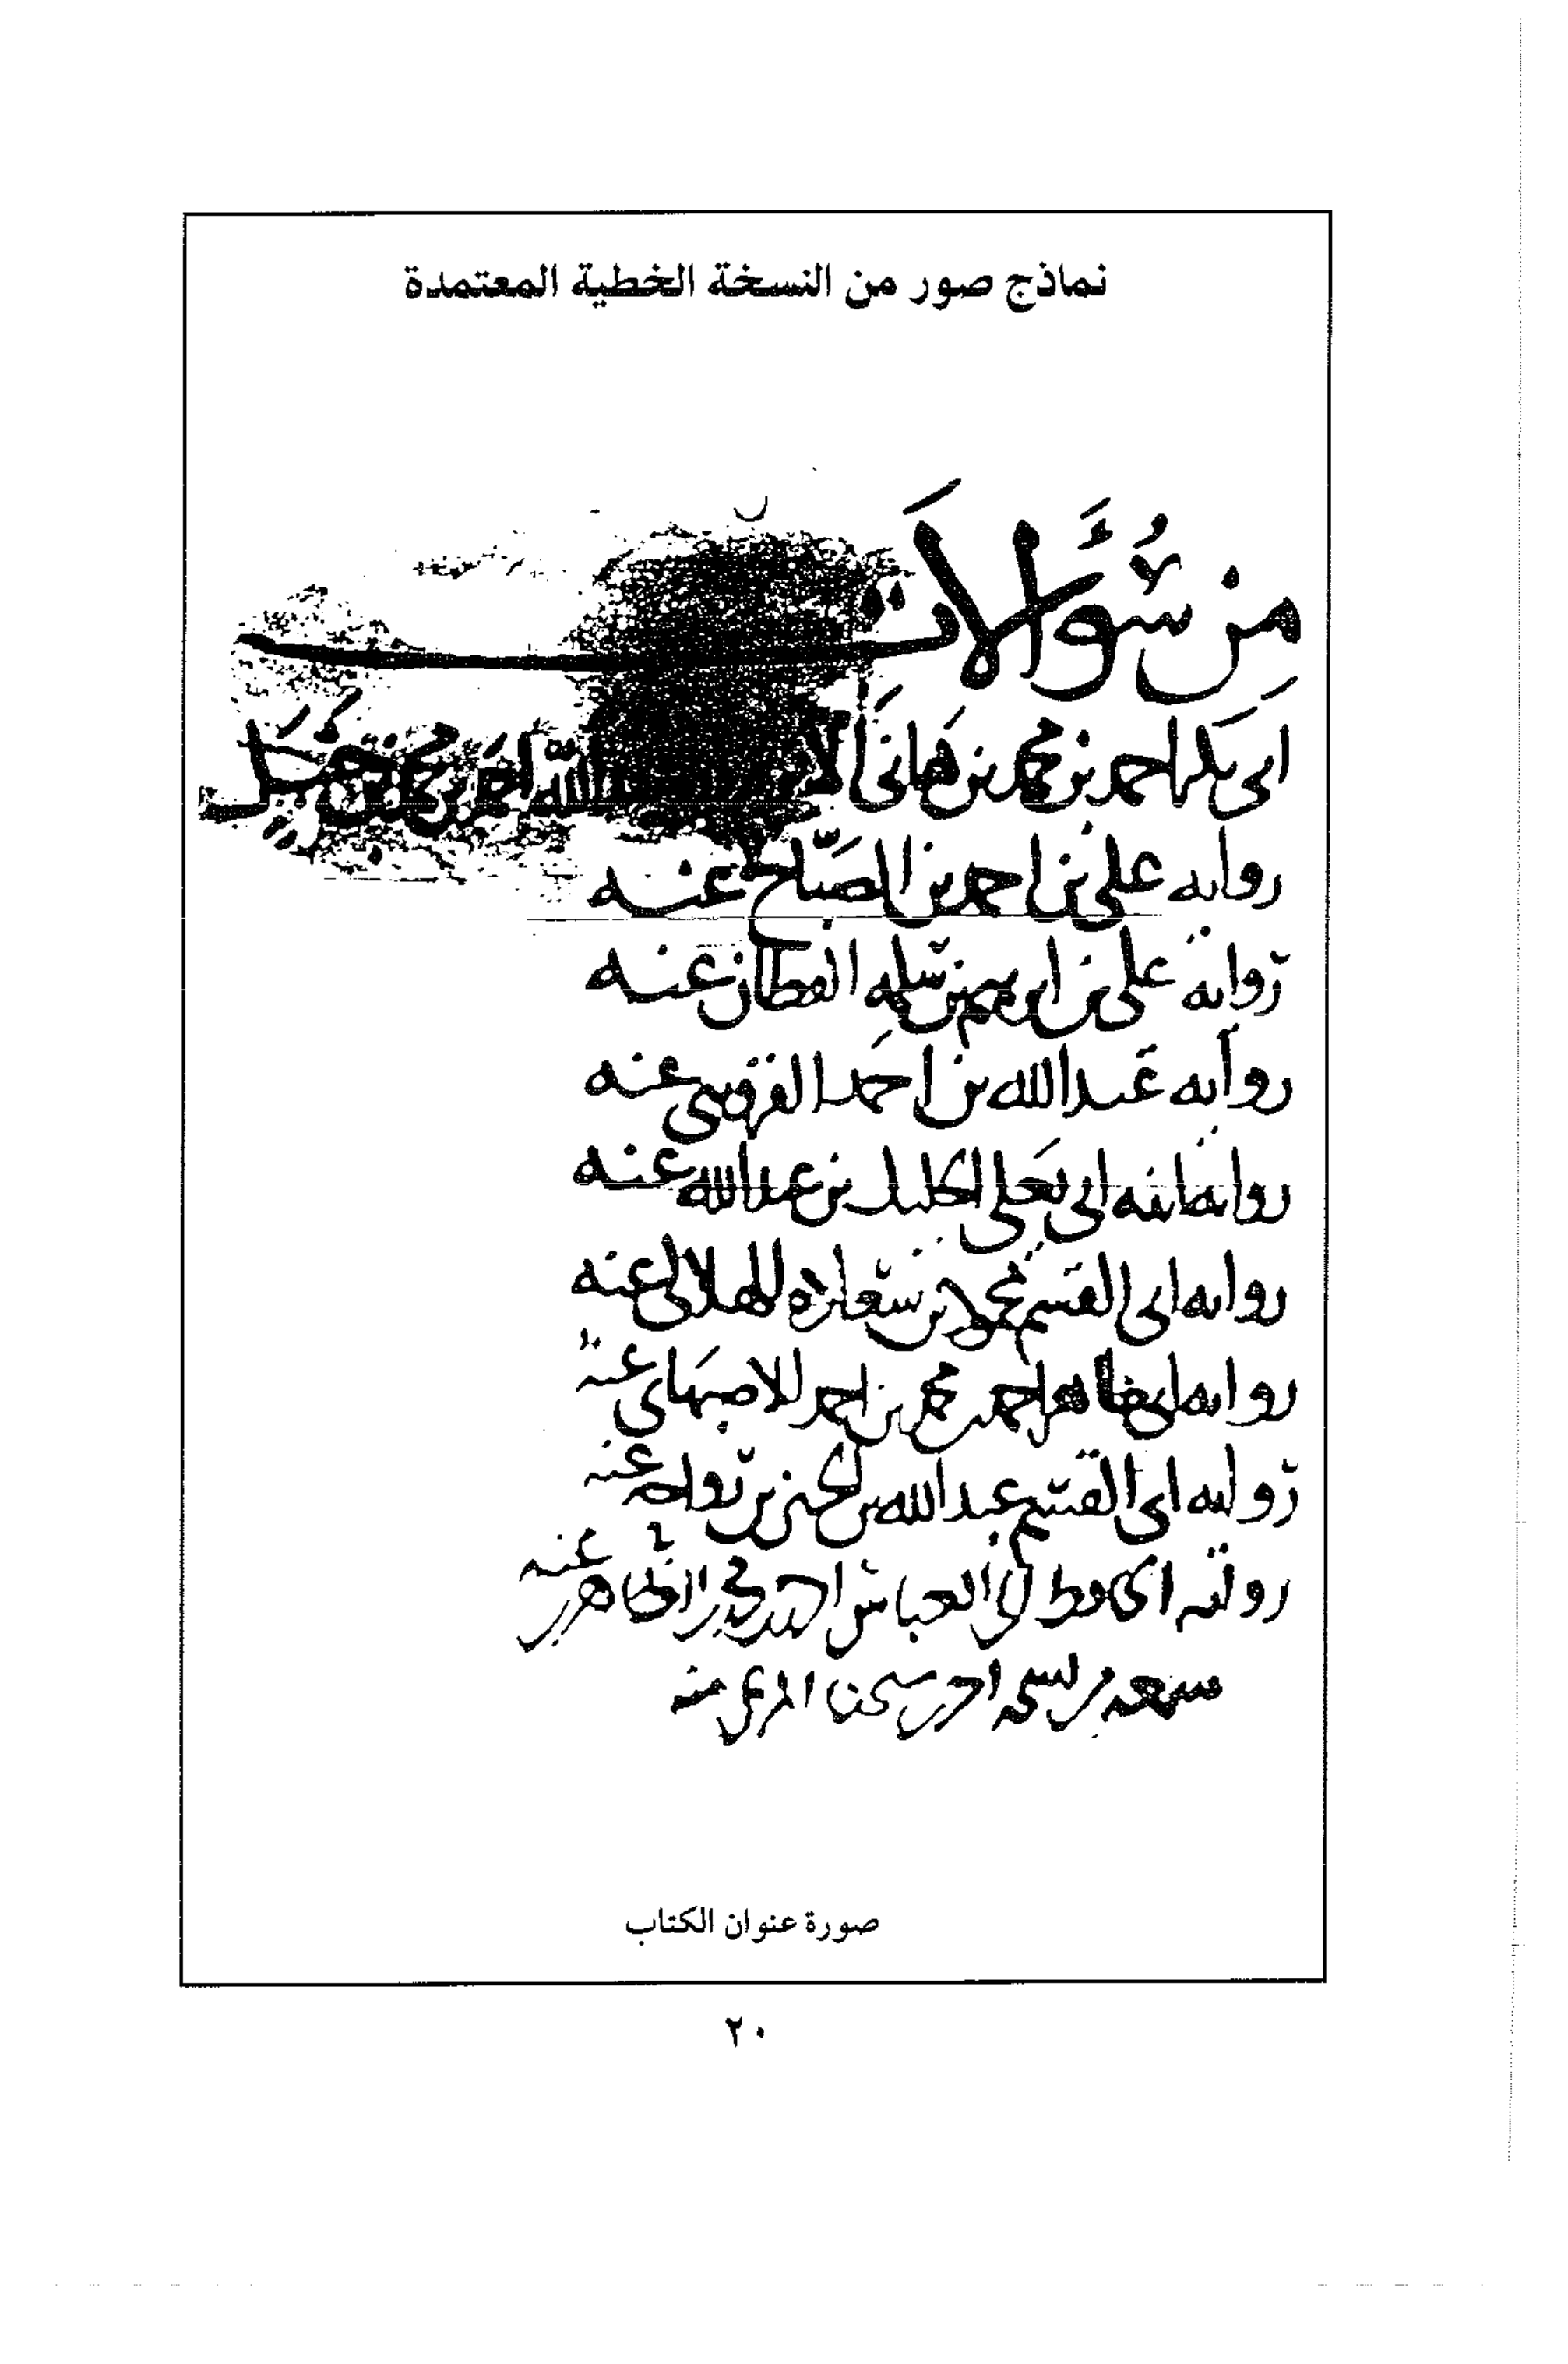 نماذج صور من النسخة الخطية المعتمدة
مِن سُؤَالَات
ابى بكر احمد بن محمد بن هانئ الا الله احمد بن محمد بن حنبل
روايه على بن احمد بن الصباح عنه
روايه على بن ابرهيم بن سلمه القطان عنه
روايه عبد الله بن احمد القزويني عنه
روايه ابنه ابى يعلى الخليل بن عبد الله عنه
روايه ابى القسم محمود بن سعاده الهلالى عنه
روايه ابى طاهر احمد بن محمد بن احمد الاصبهاني عنه
روايه ابى القسم عبد الله بن الحسين بن رواحه عنه
روايه الحافظ ابى العباس احمد بن محمد بن الظاهرى عنه
سمعه احمد بن
صورة عنوان الكتاب
٢٠